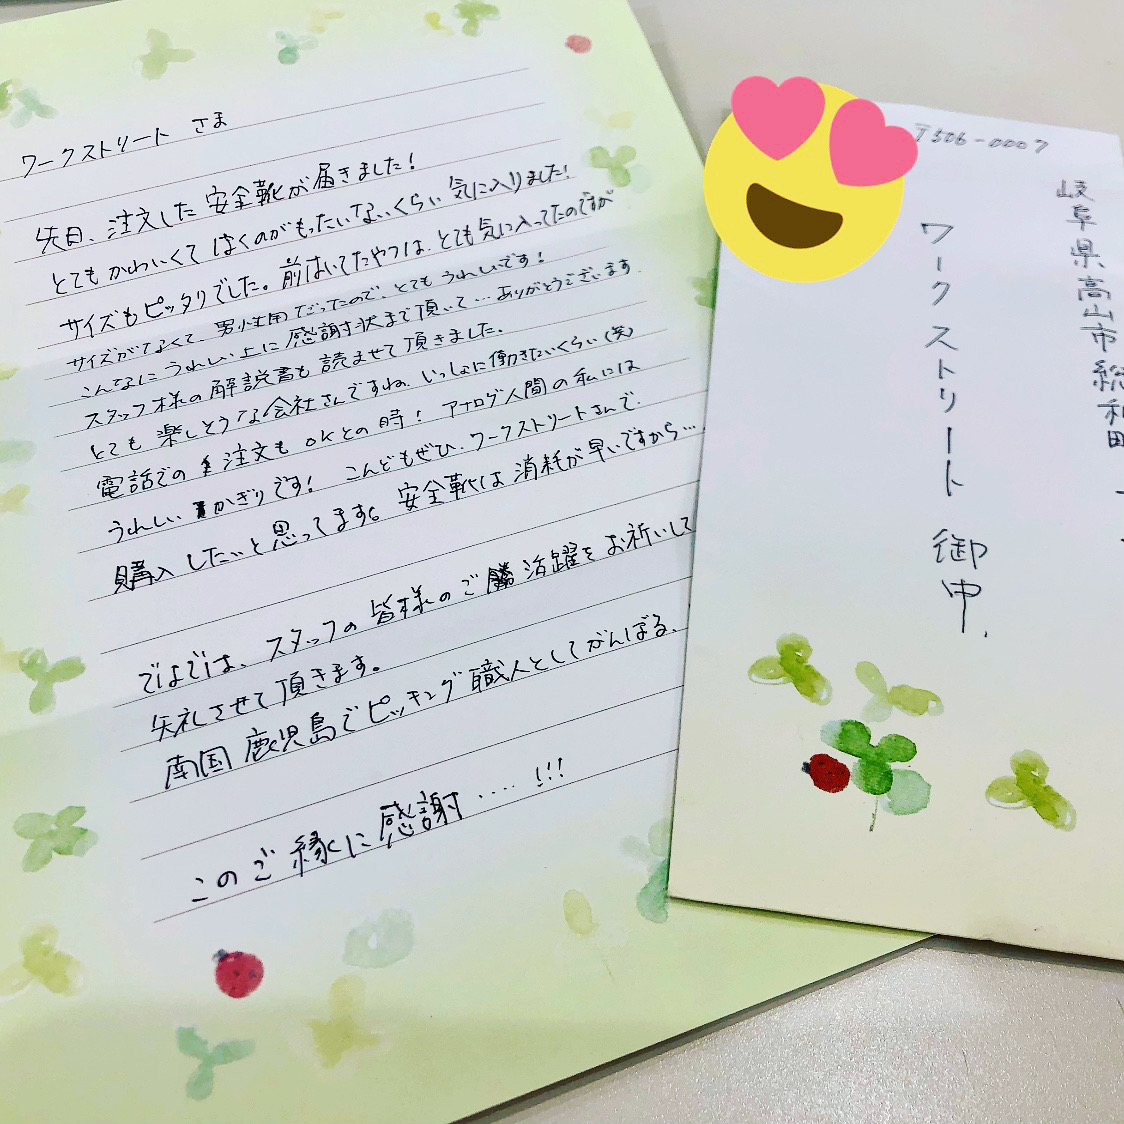 ワークストリート さま
先日、注文した安全靴が届きました!
とてもかわいくてはくのがもったいないくらい気に入りました!
サイズもピッタリでした。前はいてたやつは、とても気に入ってたのですが
サイズがなくて、男性用だったので、とてもうれしいです!
こんなにうれしい上に感謝状まで頂いて…ありがとうございます。
スタッフ様の解説書も読ませて頂きました。
とても楽しそうな会社さんですね。いっしょに働きたいくらい(笑)
電話での注文もokとの時! アナログ人間の私には
うれしいかぎりです! こんどもぜひ、ワークストリートさんで、
購入したいと思ってます。安全靴は消耗が早いですから…
ではでは、スタッフの皆様のご活躍をお祈いして
失礼させて頂きます。
南国鹿児島でピッキング職人としてがんばる、
このご縁に感謝……!!!
〒506-0007
岐阜県高山市総和町
ワークストリート御中,